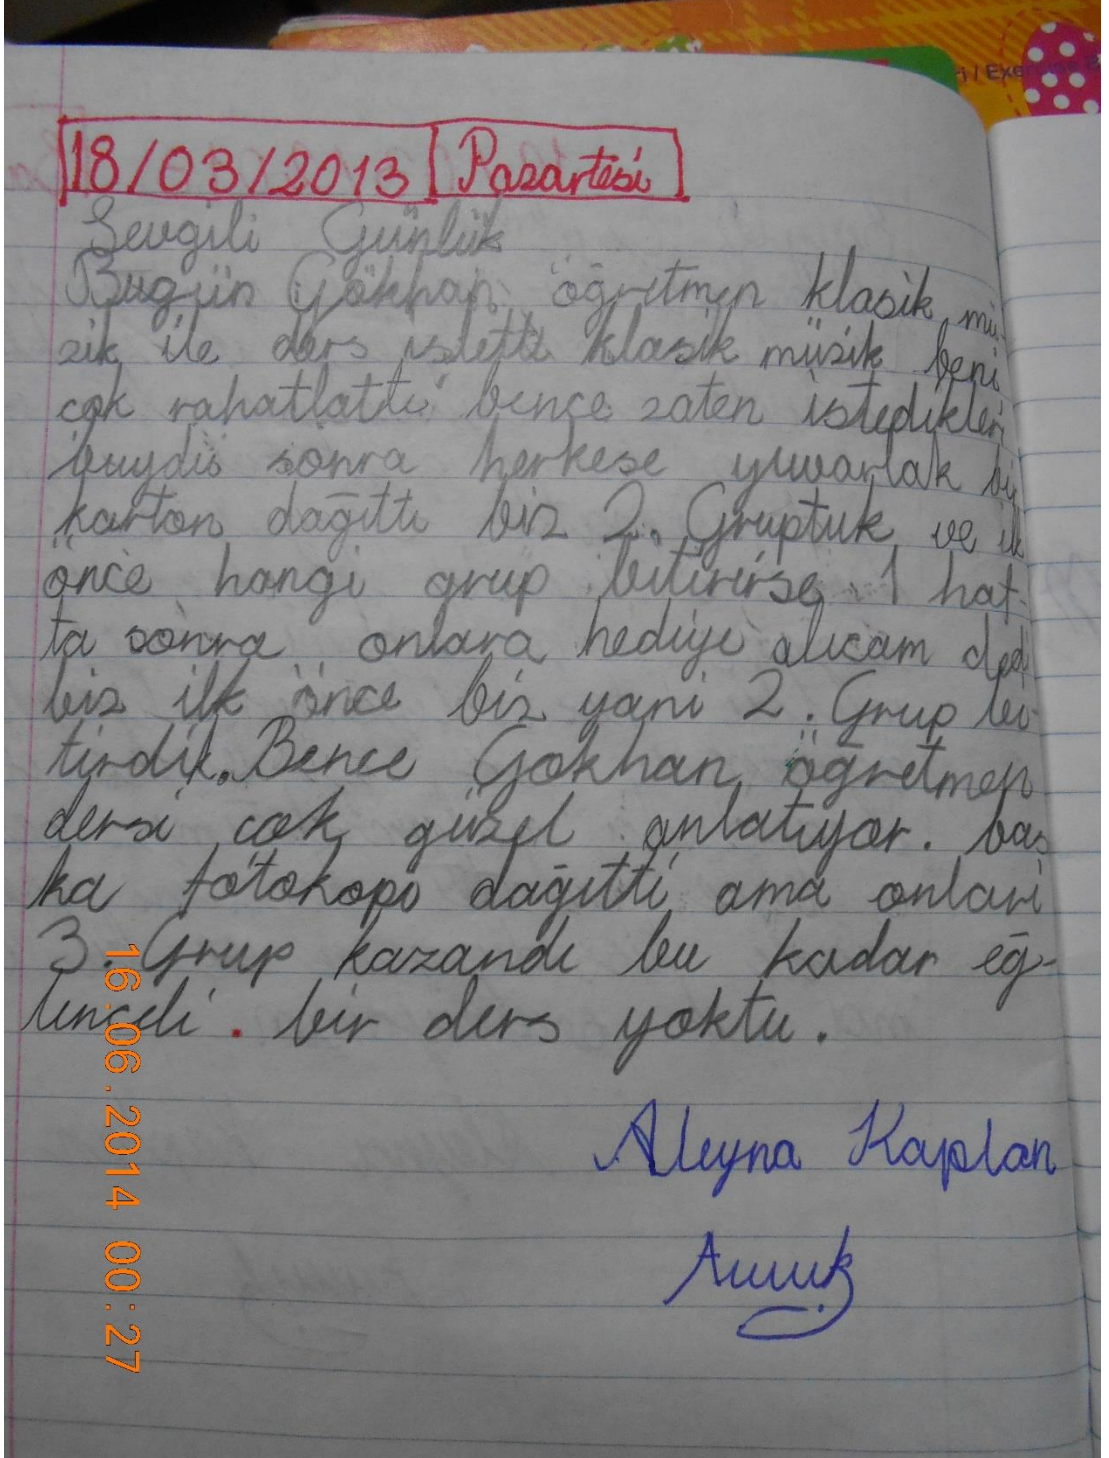 ri / Exercise B
18/03/2013 Pazartesi
Sevgili Günlük
Bugün Gökhan öğretmen klasik mü-
zik ile ders işletti klasik müzik beni
cok rahatlattı bence zaten istedikleri
buydu sonra herkese yuvarlak bir
karton dağıttı biz 2. Gruptuk ve ilk
önce hangi grup bitirirse 1 haf-
ta sonra onlara hediye alıcam dedi
biz ilk önce biz yani 2. Grup bi-
tirdik. Bence Gökhan öğretmen
dersi cok güzel anlatıyor. baş
ka fotokopi dağıttı ama onları
3. Grup kazandı bu kadar eğ-
lenceli . bir ders yoktu.
Aleyna Kaplan
16.06.2014 00:27